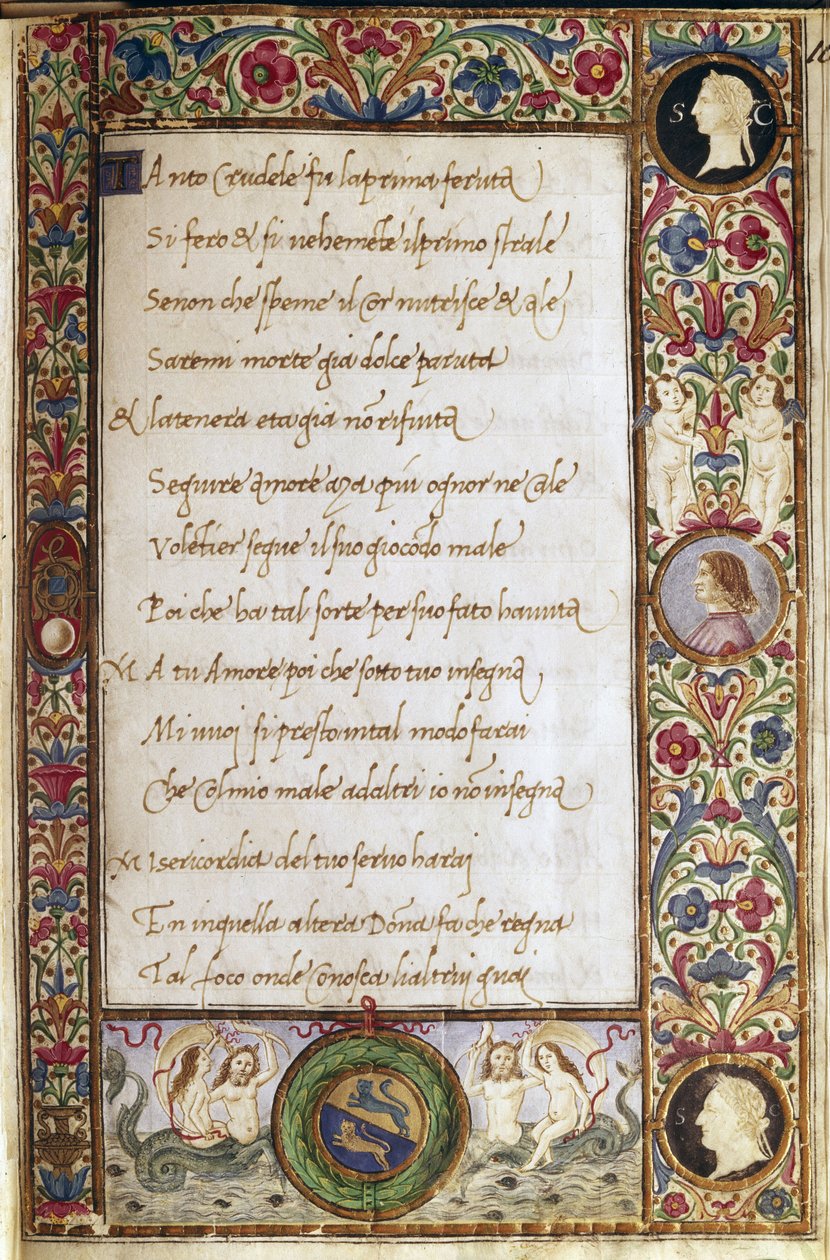 10
S C
TAnto Crudele fu laprima feruta
Si fero & si uehemēte ilprimo strale
Senon che speme il Cor nutrisce & ale
Saremi morte gia dolce paruta
& latenera eta gia nō rifiuta
Seguire amore aza piu ognor ne Cale
Volētier segue il suo giocōdo male
Poi che ha tal sorte per suo fato hauuta
MA tu Amore poi che sotto tuo insegna
Mi uuoi si presto intal modo farai
Che Colmio male adaltri io nō insegna
Misericordia del tuo seruo harai
En inquella altera Dōna fa che regna
Tal foco onde Conosca lialtrui guai
S C